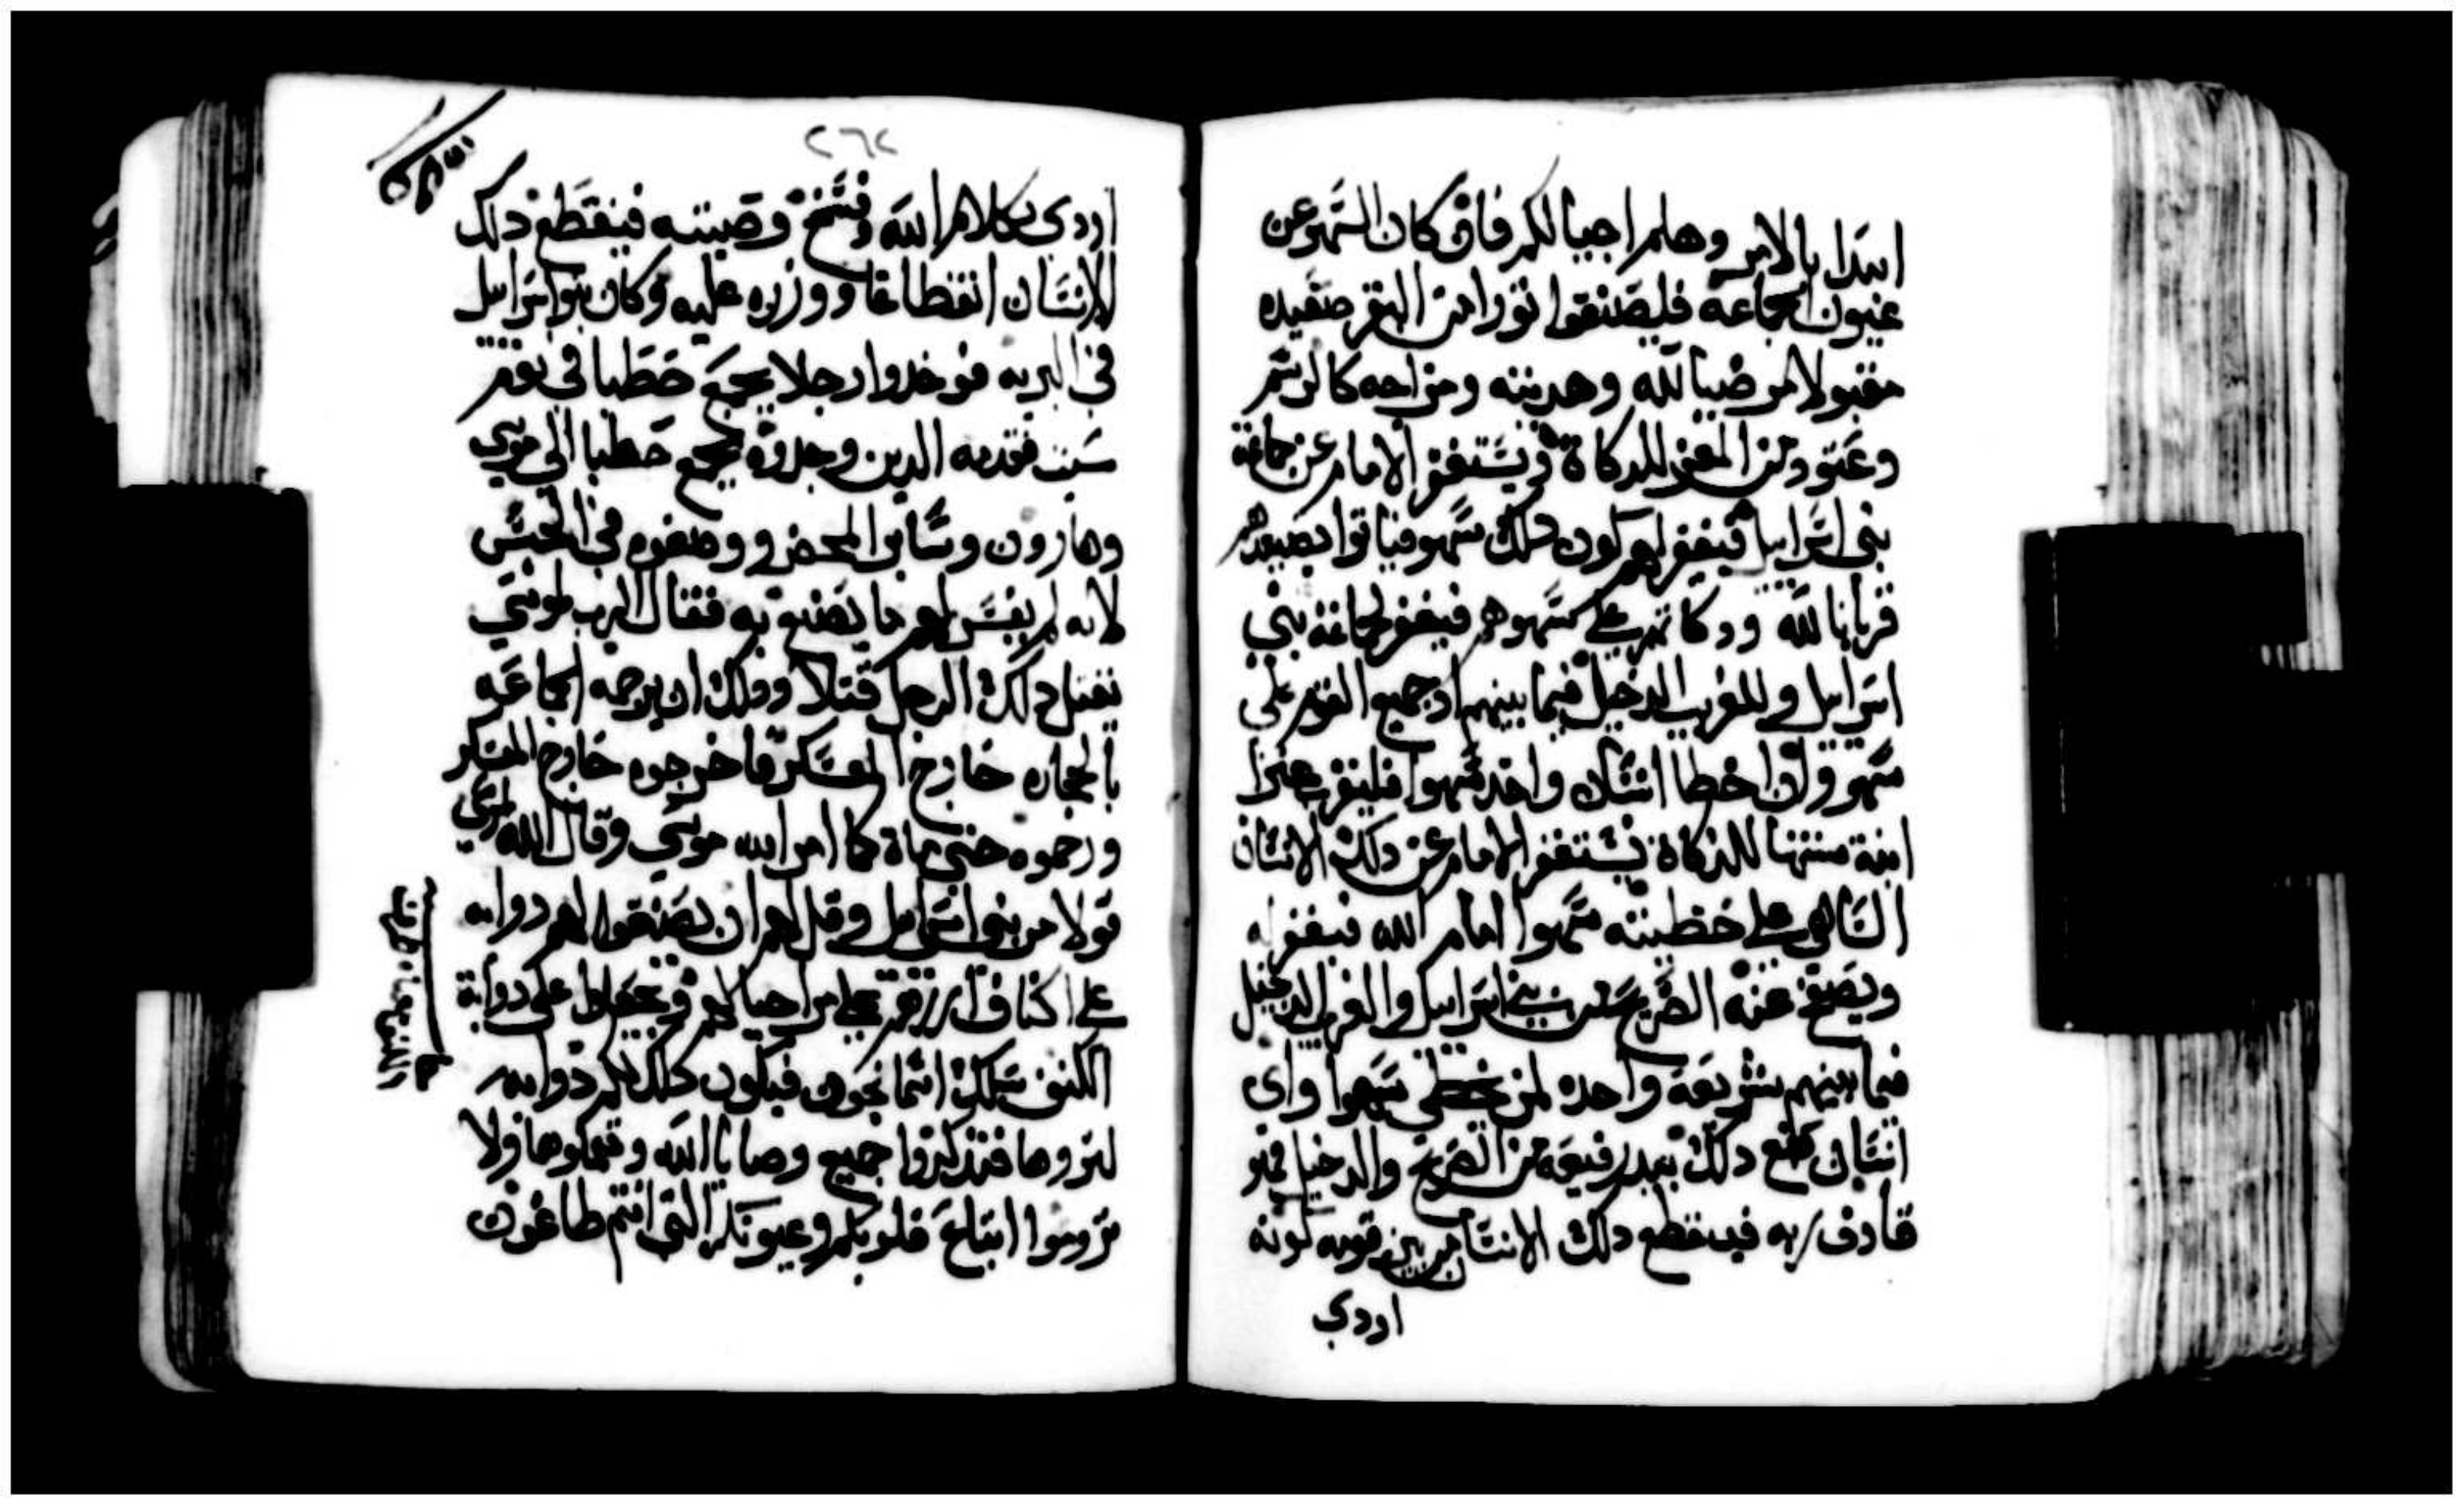 ابتدا بالامر وهلم اجيالكم فان كان السهو عن
عيون الجماعة فليصنعوا ثورا من البقر صعيده
مقبولا مرضيا لله وهديته ومزاجه كالرسم
وعتود من المعز للدكاة ويستغفر الامام عن جماعة
بني اسراييل فيغفر لهم لكون دلك سهو فياتوا بصعيدهم
قربانا لله ودكاتهم على سهوهم فيغفر لجماعة بني
اسراييل وللغريب الدخيل فيما بينهم اد جميع القوم على
سهو وان اخطا انسان واحد سهوا فليقرب عنزا
ابنة سنتها للدكاة يستغفر الامام عن دلك الانسان
الساهي على خطيته سهوا امام الله فيغفر له
ويصفح عنه الصريح من بني اسراييل والغريب الدخيل
فيما بينهم شريعة واحده لمن يخطي سهوا واي
انسان صنع دلك بيد رفيعه من الصريح والدخيل فهو
قادف ربه فينقطع دلك الانسان من بين قومه لونه
ازدي
٢٦٢
ازدي بكلام الله وفسخ وصيته فينقطع دلك
الانسان انقطاعا ووزره عليه وكان بنو اسراييل
في البريه فوجدوا رجلا يجمع حطبا في يوم
سبت فقدمه الدين وجدوه يجمع حطبا الى موسي
وهارون وساير المحضر ووضعوه في الحبس
لانه لم يفسر لهم ما يصنع به فقال الرب لموسي
يقتل دلك الرجل قتلا ودلك ان يرجمه الجماعه
بالحجاره خارج المعسكر فاخرجوه خارج المعسكر
ورجموه حتي ماة كما امر الله موسي وقال الله لموسي
قولا مر بنو اسراييل وقل لهم ان يصنعوا لهم دوايه
على اكناف ازرهم على مر اجيالهم ويجعلوا على دواية
الكنف سلك اسمانجون فيكون دلك لكم دوايه
لتروها فتدكروا جميع وصايا الله وتعملوها ولا
تروموا اتباع قلوبكم وعيونكم التي انتم طاغون